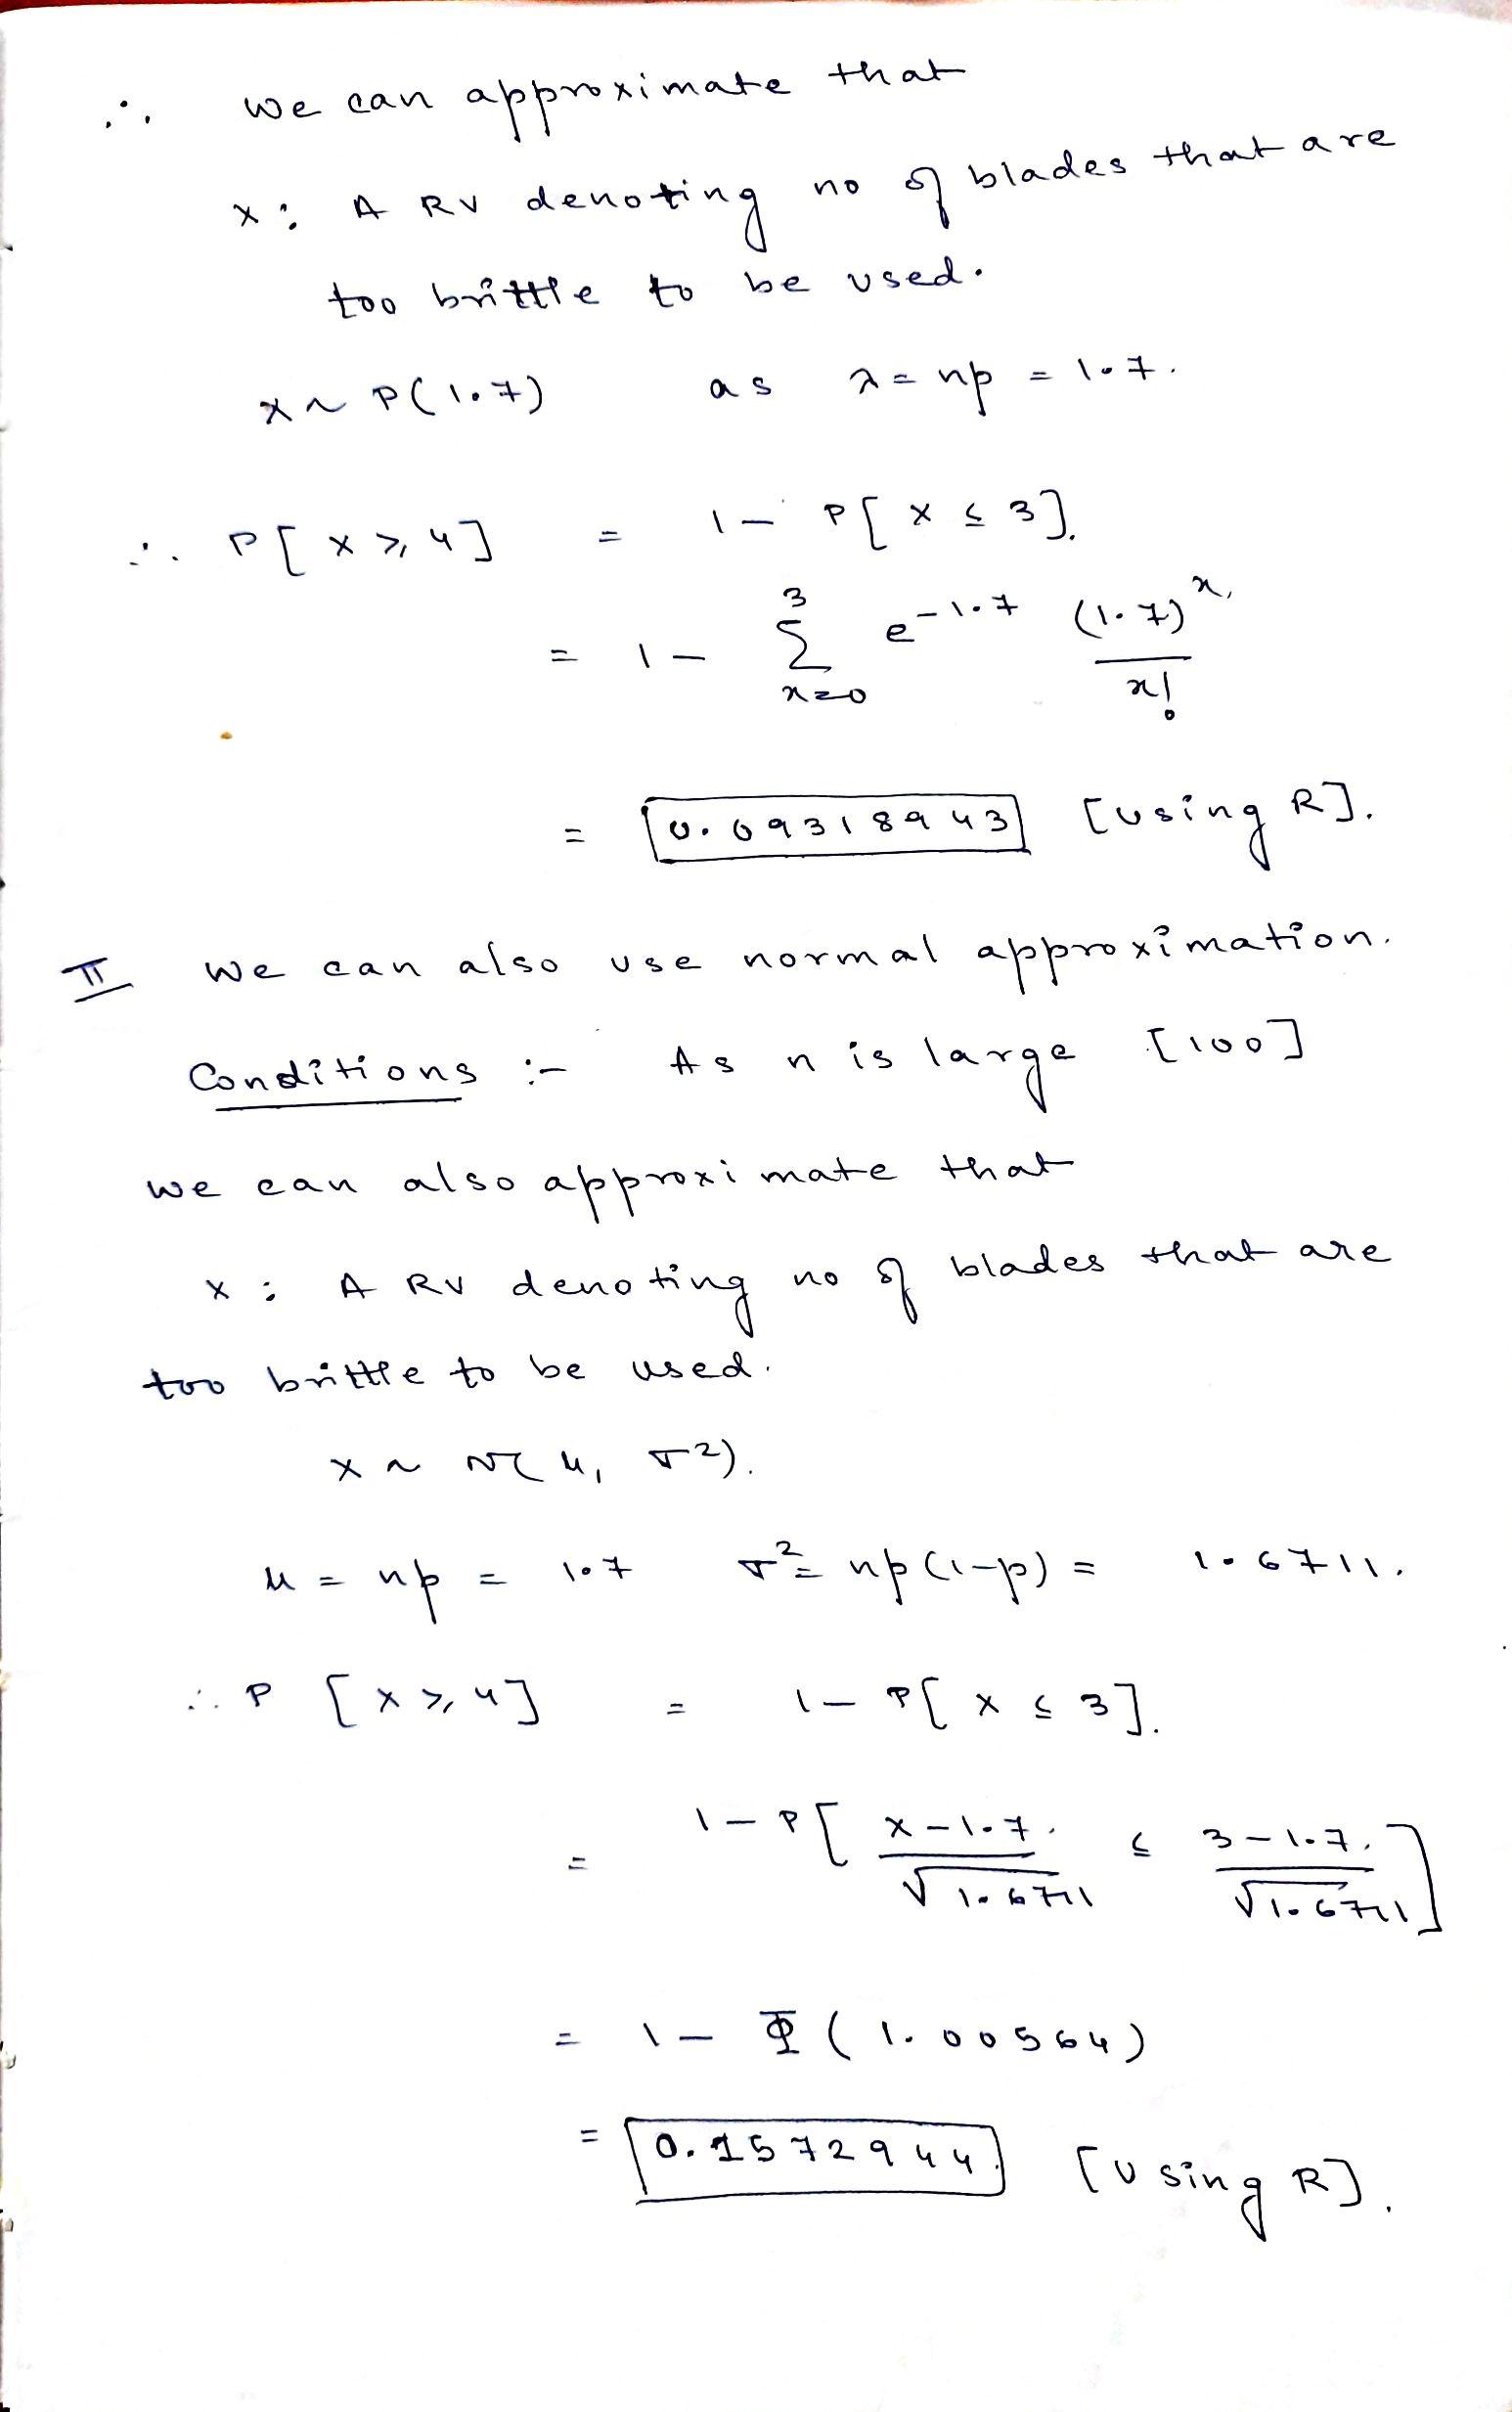 ∴ We can approximate that
X : A RV denoting no of blades that are
too brittle to be used.
X ~ P(1.7) as λ = np = 1.7.
∴ P[X ≥ 4] = 1 - P[X ≤ 3].
= 1 - Σ_{x=0}^{3} e^{-1.7} (1.7)^x / x!
= 0.09318943 [Using R].
II We can also use normal approximation.
Conditions :- As n is large [100]
we can also approximate that
X : A RV denoting no of blades that are
too brittle to be used.
X ~ N(μ, σ²).
μ = np = 1.7 σ² = np(1-p) = 1.6711.
∴ P [X ≥ 4] = 1 - P[X ≤ 3].
= 1 - P[ (X - 1.7) / √1.6711 ≤ (3 - 1.7) / √1.6711 ]
= 1 - Φ(1.00564)
= 0.1572944 [Using R].